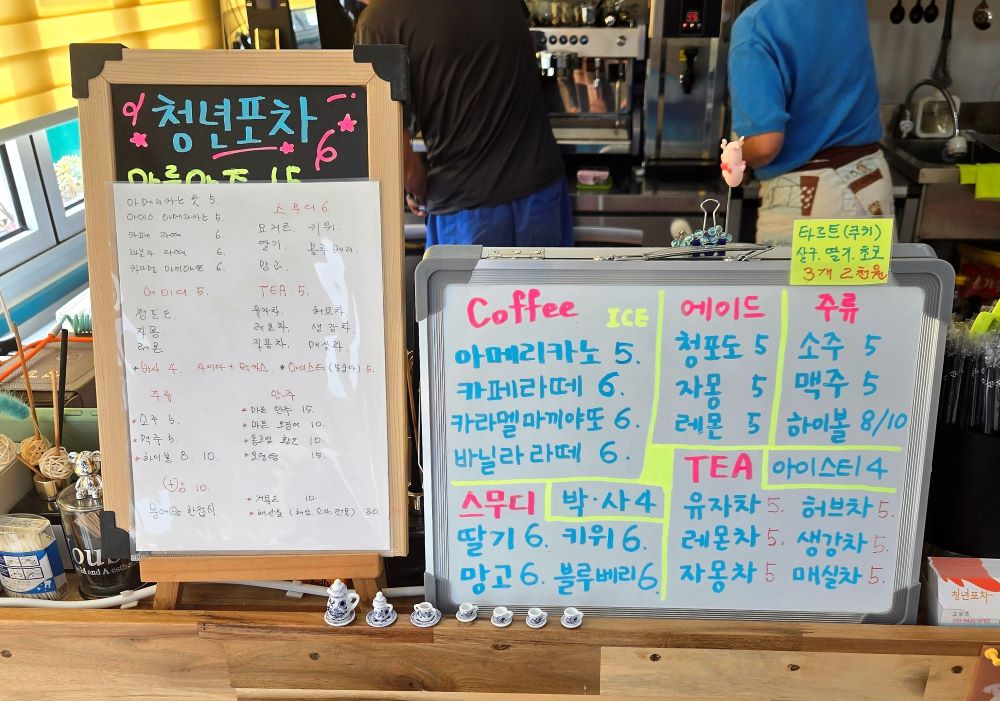 청년포차
6
마른안주 15
아메리카노 핫 5.
아이스 아메리카노 5.
카페 라떼 6.
바닐라 라떼 6.
카라멜 마끼아또 6.
스무디 6.
요거트. 키위.
딸기. 블루베리.
망고.
에이드 5.
청포도.
자몽.
레몬.
TEA. 5.
유자차. 허브차.
레몬차. 생강차.
자몽차. 매실차.
+박사 4. 사이다 + 박카스. * 아이스티 (복숭아) 5.
주류
* 소주 5.
* 맥주 5.
* 하이볼 8. 10.
안주
* 마른 안주 15.
* 마른 오징어 10.
10.
15.
10.
10.
30.
Coffee ICE
아메리카노 5.
카페라떼 6.
카라멜마끼야또 6.
바닐라 라떼 6.
에이드
청포도 5
자몽 5
레몬 5
주류
소주 5
맥주 5
하이볼 8/10
타르트(쿠키)
살구. 딸기. 초코
3개 2천원
스무디
박·사 4
딸기 6. 키위 6.
망고 6. 블루베리 6.
TEA
아이스티 4
유자차 5. 허브차 5.
레몬차 5. 생강차 5.
자몽차 5 매실차 5.
청년포차